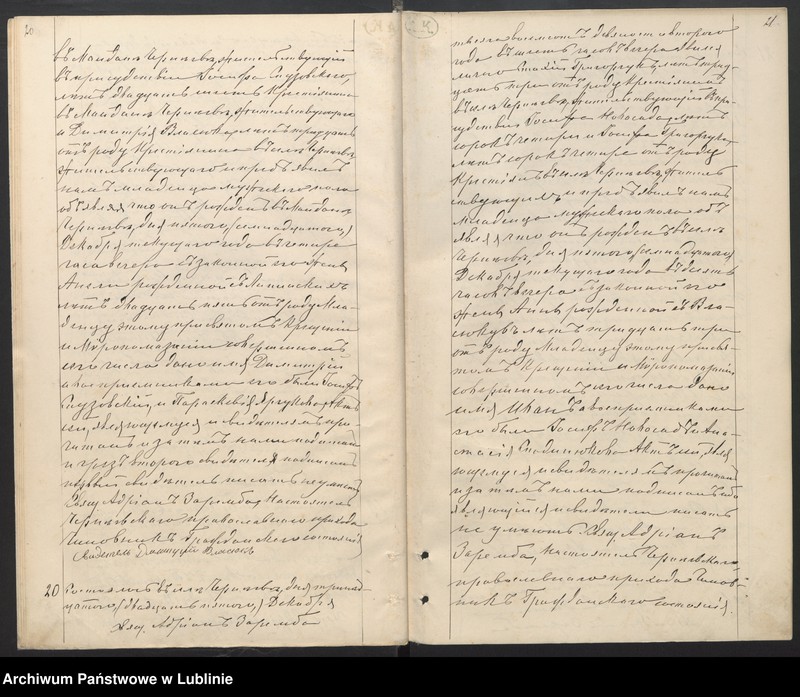 20
въ Майданѣ Черниевѣ жительствующій
въ присудствіи Іосифа Глузовскаго
лѣтъ двадцать шесть крестьянина
въ Майданѣ Черниевѣ жительствующаго
и Димитрія Власюка лѣтъ тридцать
отъ роду крестьянина въ селѣ Черниевѣ
жительствующаго и предъявилъ
намъ младенца мужескаго пола
объявляя что онъ рожденъ въ Майданѣ
Черниевѣ дня пятого (семнадцатого)
Декабря текущаго года въ четыре
часа вечера съ законной его жены
Анны рожденной
лѣтъ двадцать пять отъ роду Мла-
денцу этому при святомъ Крещеніи
и Мѵропомазаніи совершенномъ
сего числа дано имя Димитрій
а воспріемниками его были Іосифъ
Глузовскій и Параскевія Актъ
сей, являющемуся и свидѣтелямъ про-
читанъ и затѣмъ нами подписанъ
и чрезъ второго свидѣтеля подписанъ
первый свидѣтель писать не умѣетъ
Свящ. Адріанъ Заремба Настоятель
Черниевскаго православнаго прихода
Чиновникъ Гражданскаго состоянія
Свидетель Димитрій Власюкъ
20 Состоялось въ селѣ Черниевѣ, дня тринад-
цатого (двадцать пятого) Декабря
Свящ. Адріанъ Заремба
21
тысяча восемьсотъ девяносто второго
года въ шесть часовъ вечера явился
лично Григорчукъ, лѣтъ трид-
цать три отъ роду крестьянинъ
въ селѣ Черниевѣ жительствующій въ при-
судствіи Іосифа Новосада лѣтъ
сорокъ четыре и Іосифа Григорчука
лѣтъ сорокъ четыре отъ роду
Крестьянъ въ селѣ Черниевѣ житель-
ствующихъ и предъявилъ намъ
младенца мужескаго пола объ-
являя что онъ рожденъ въ селѣ
Черниевѣ, дня пятого (семнадцатого)
Декабря текущаго года въ десять
часовъ вечера съ законной его
жены Анны рожденной съ Вла-
сюковъ лѣтъ тридцать три
отъ роду Младенцу этому при свя-
томъ Крещеніи и Мѵропомазаніи
совершенномъ сего числа дано
имя Иванъ а воспріемниками
его были Іосифъ Новосадъ и Ана-
стасія Актъ сей, явля-
ющемуся и свидѣтелямъ прочитанъ
и затѣмъ нами подписанъ ибо
являющійся и свидѣтели писать
не умѣютъ Свящ. Адріанъ
Заремба, Настоятель Черниевскаго
православнаго прихода Чинов-
никъ Гражданскаго состоянія.
Archiwum Państwowe w Lublinie